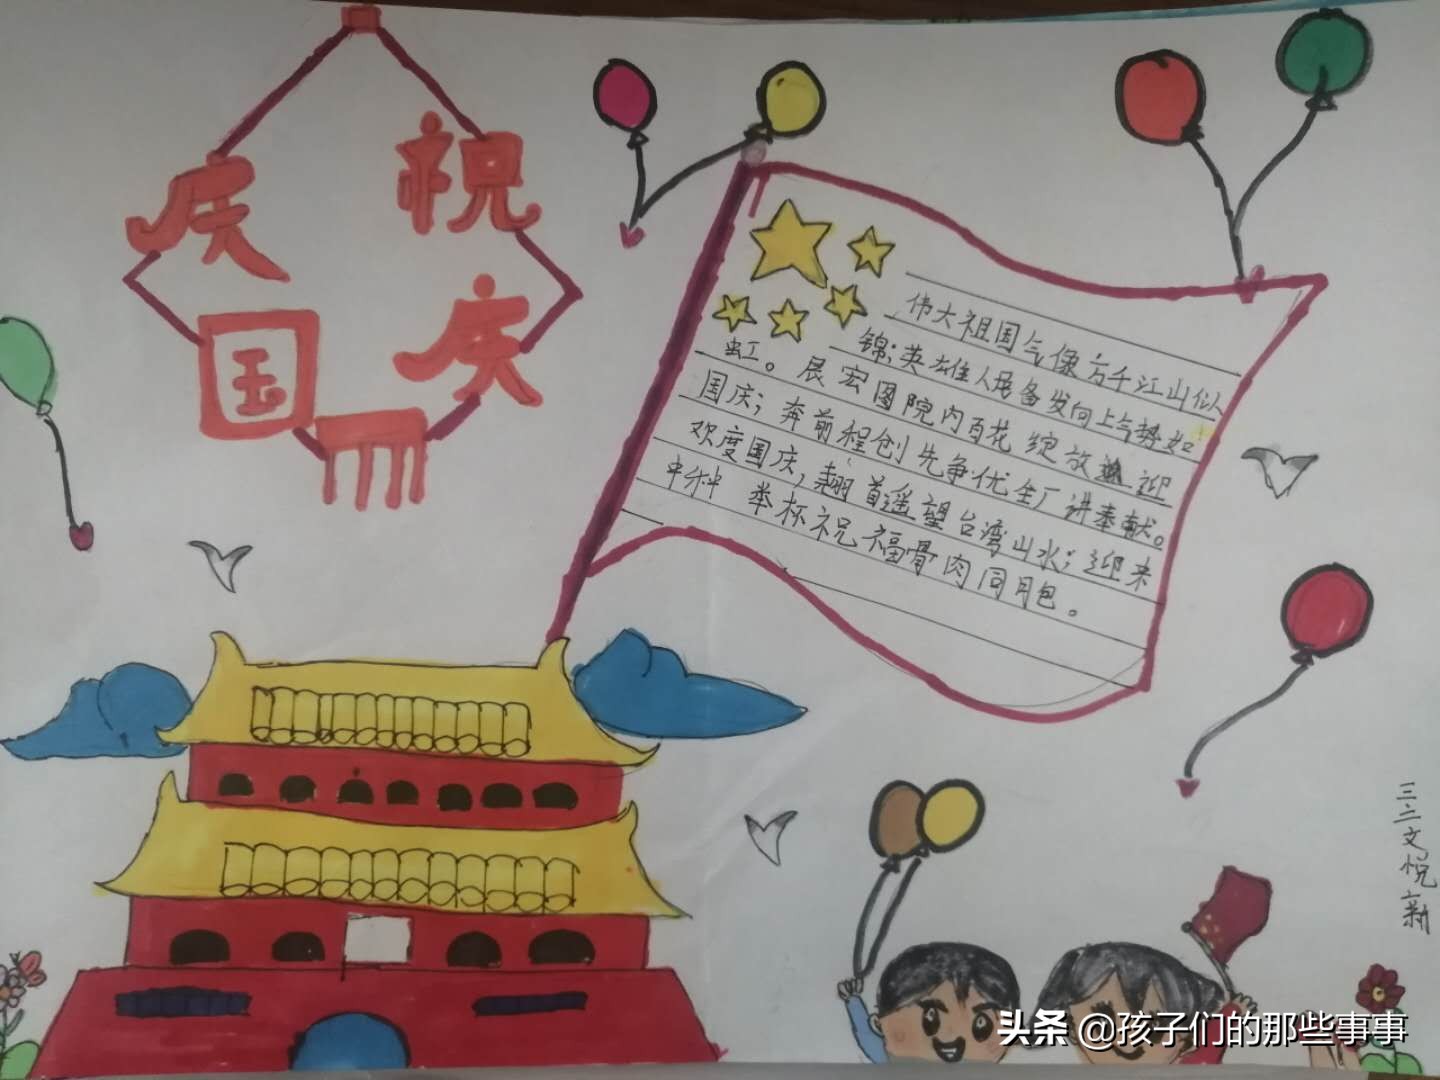 庆祝
国庆
伟大祖国气像方千江山似
锦;英雄人备发向上气势如
虹。展宏图院内百花绽放迎
国庆;奔前程创先争优全厂讲奉献。
欢度国庆,翘首遥望台湾山水;迎来
中秋 举杯祝福骨肉同胞。
三二文悦新
头条@孩子们的那些事事